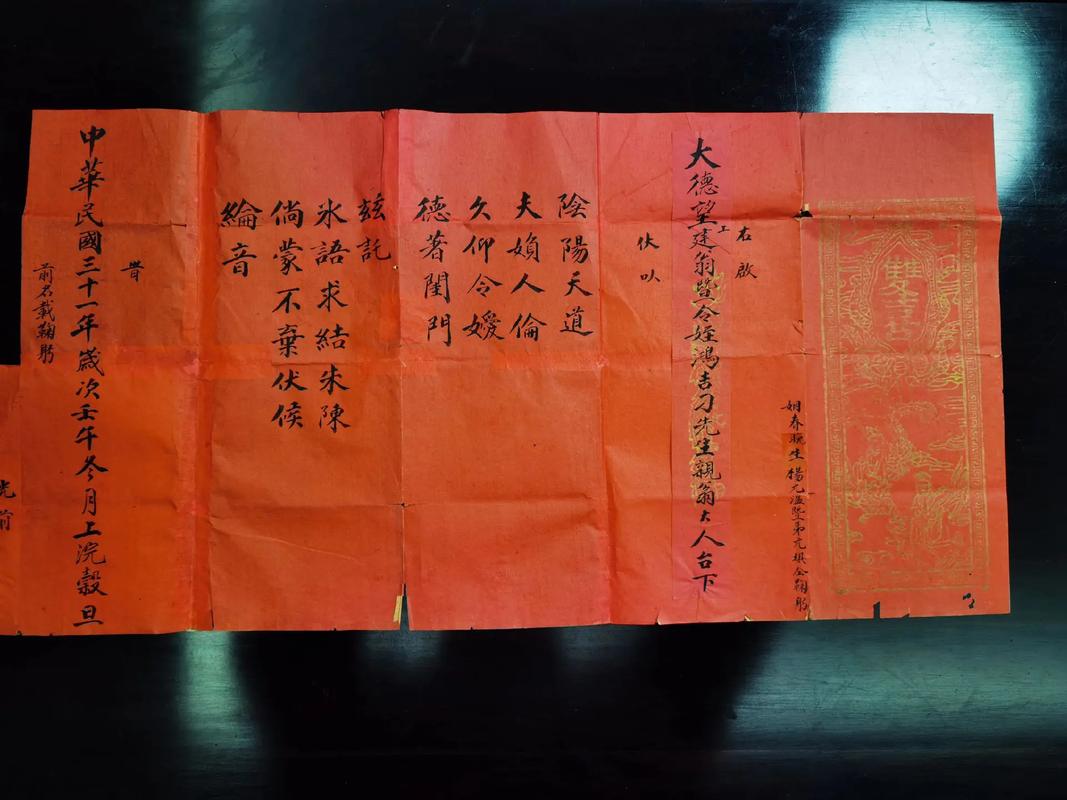 雙喜
姻眷晚生楊元溢暨弟元棋仝鞠躬
右啟
上
大德望廷翁暨令姪鴻吉刁先生親翁大人台下
伏以
陰陽天道
夫婦人倫
久仰令嬡
德著閨門
兹託
氷語求結朱陳
倘蒙不棄伏候
綸音
旹
中華民國三十一年歲次壬午冬月上浣穀旦
前名載鞠躬
光前